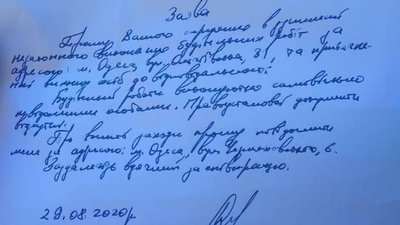 Заява
Прошу Вашого сприяння в припиненні
незаконного виконання будівельних робіт за
адресою: м. Одеса, вул. 31, та притягне-
нні винних осіб до відповідальності.
Будівельні роботи виконуються самовільно
невідомими особами. Правоустановчі документи
відсутні.
Про вжиті заходи прошу повідомити
мене за адресою: м. Одеса, вул. Черняховського, 6.
Заздалегідь вдячний за співпрацю.
29.08.2020р